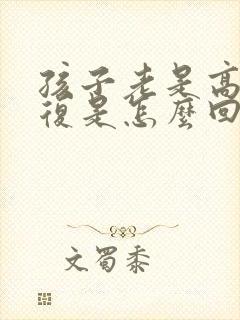 孩子老是高
復是怎麼回
文蜀黍